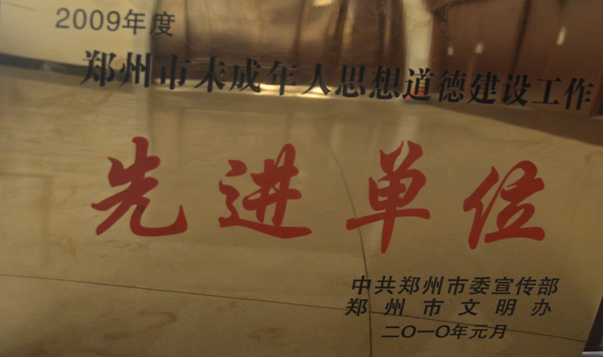 2009年度
郑州市未成年人思想道德建设工作
先进单位
中共郑州市委宣传部
郑州市文明办
二〇一〇年元月